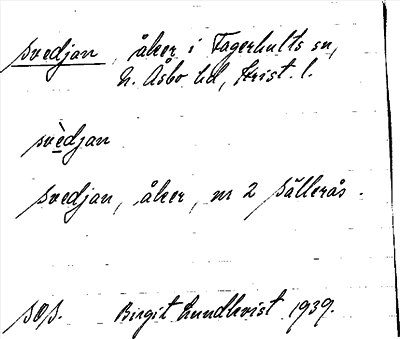 svedjan, åker i Fagerhults sn,
N. Åsbo hd, Krist. l.
svèdjan
svedjan, åker, nr 2 Sällerås.
Birgit Lundkvist 1939.